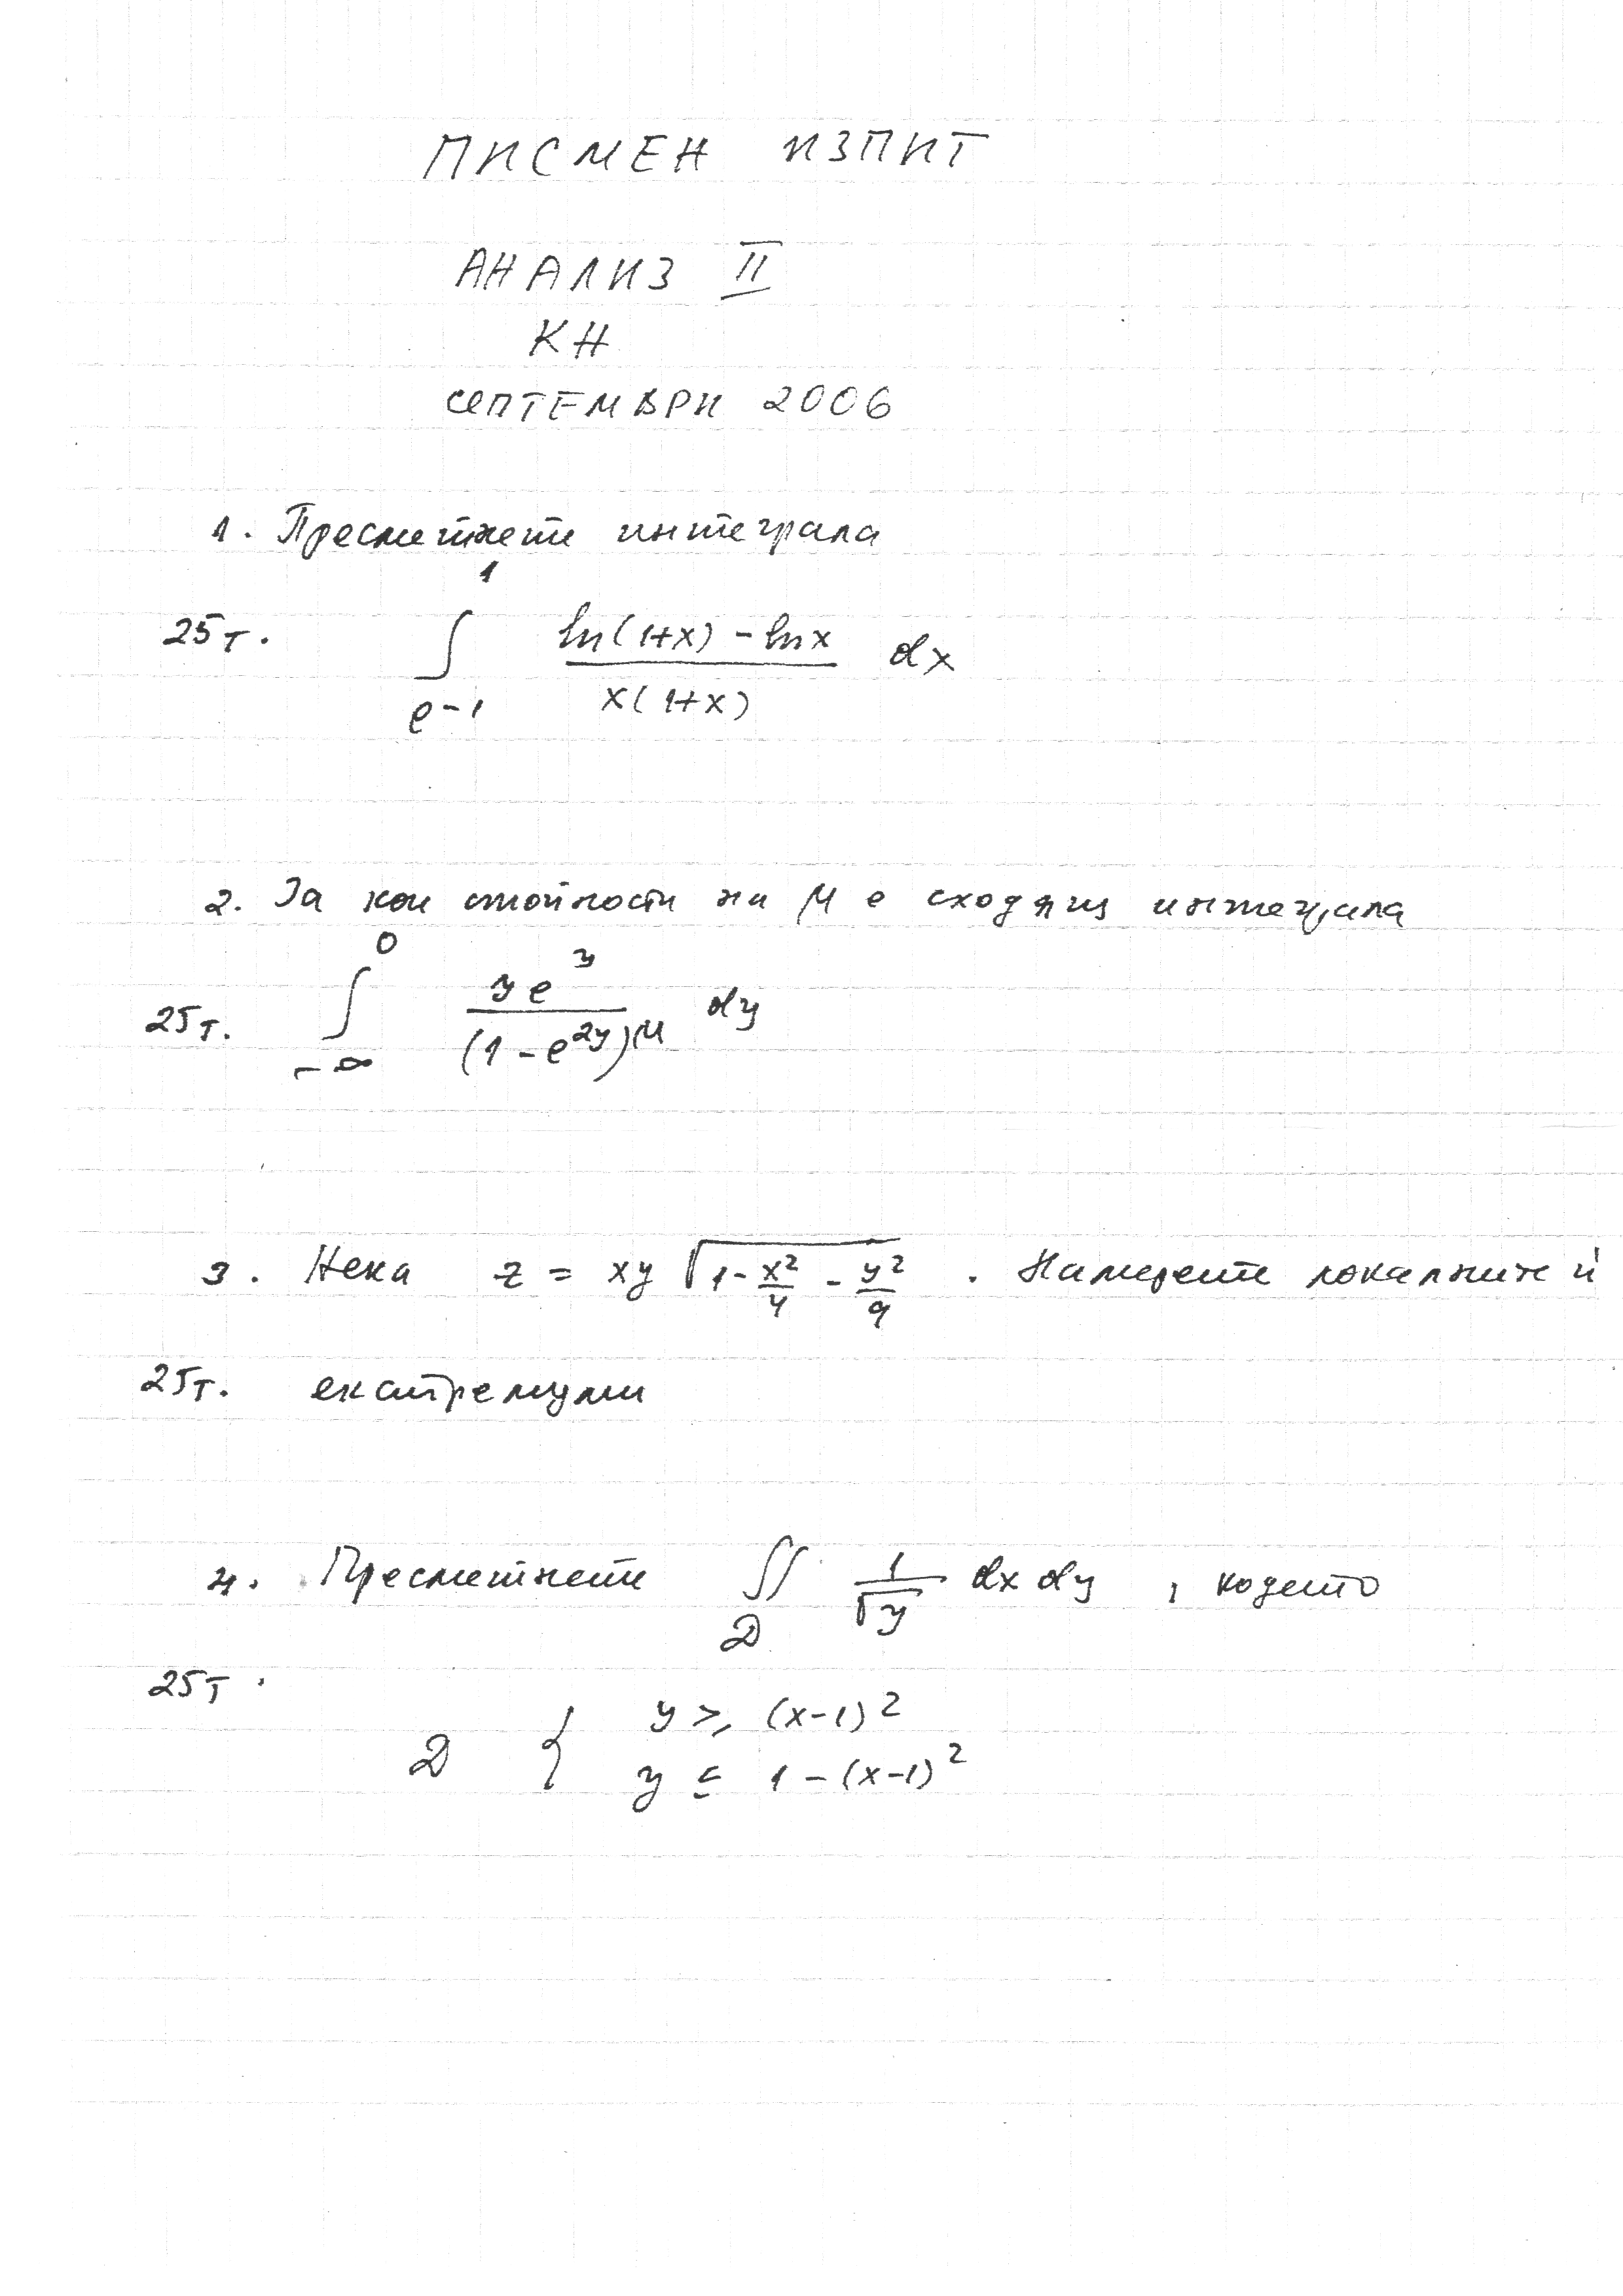 ПИСМЕН ИЗПИТ
АНАЛИЗ II
КН
СЕПТЕМВРИ 2006
1. Пресметнете интеграла
25т. ∫_{e-1}^{1} (ln(1+x) - ln x) / (x(1+x)) dx
2. За кои стойности на μ е сходящ интеграла
25т. ∫_{-∞}^{0} (y e^y) / (1 - e^{2y})^μ dy
3. Нека z = xy √(1 - x²/4 - y²/9) . Намерете локалните й
25т. екстремуми
4. Пресметнете ∬_D 1/√y dx dy , където
25т.
D { y ⩾ (x-1)²
y ≤ 1 - (x-1)²